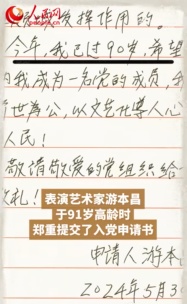 人民网
发挥作用的。
今年，我已过90岁，希望
我成为一名党的成员，我
世为人，以文化养人心
人民！
敬请敬爱的党组织给
礼！
表演艺术家游本昌
于91岁高龄时
郑重提交了入党申请书
申请人游本
2024年5月3